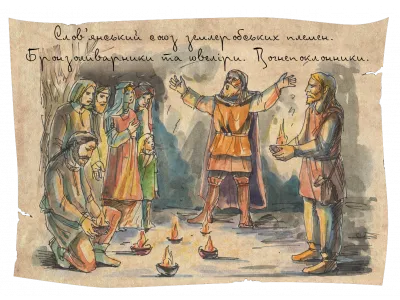 Слов'янський союз землеробських племен.
Бронзоливарники та ювеліри. Вогнепоклонники.